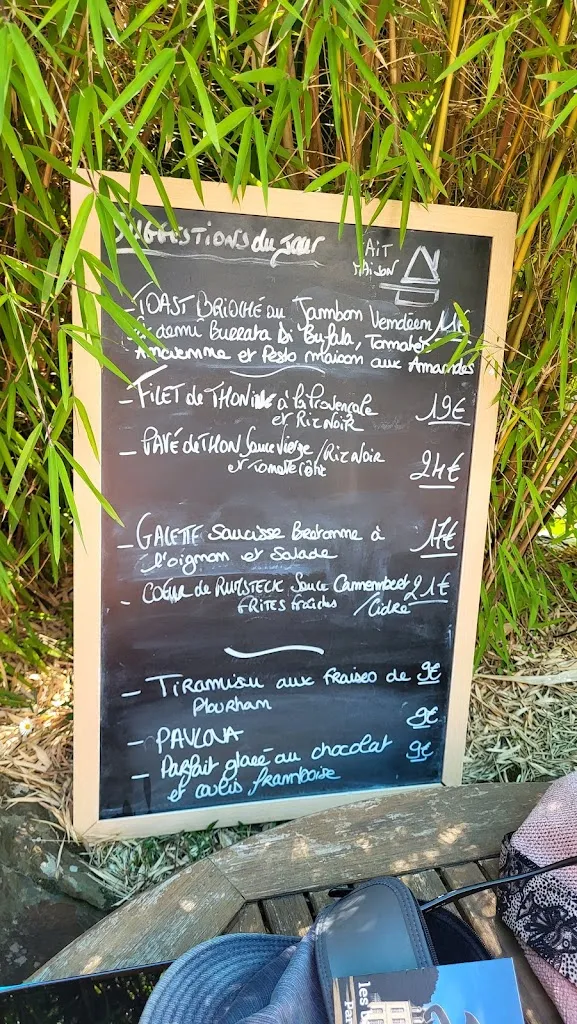 SUGGESTIONS du Jour
FAIT
MAISON
- TOAST BRIOCHÉ au Jambon Vendéen
et demi Burrata Di Bufala, Tomates
Ancienne et Pesto maison aux Amandes
- FILET de THON à la Provençale 19€
et Riz Noir
- PAVÉ de THON Sauce Vierge / Riz Noir 24€
et Tomate Côtit
- GALETTE Saucisse Bretonne à 17€
l'oignon et Salade
- COEUR de RUMSTECK Sauce Camembert 21€
FRITES fraîches / Cidre
- TIRAMISU aux fraises de 9€
Plourhan
- PAVLOVA 9€
- Parfait glacé au chocolat 9€
et coulis framboise
les
Par